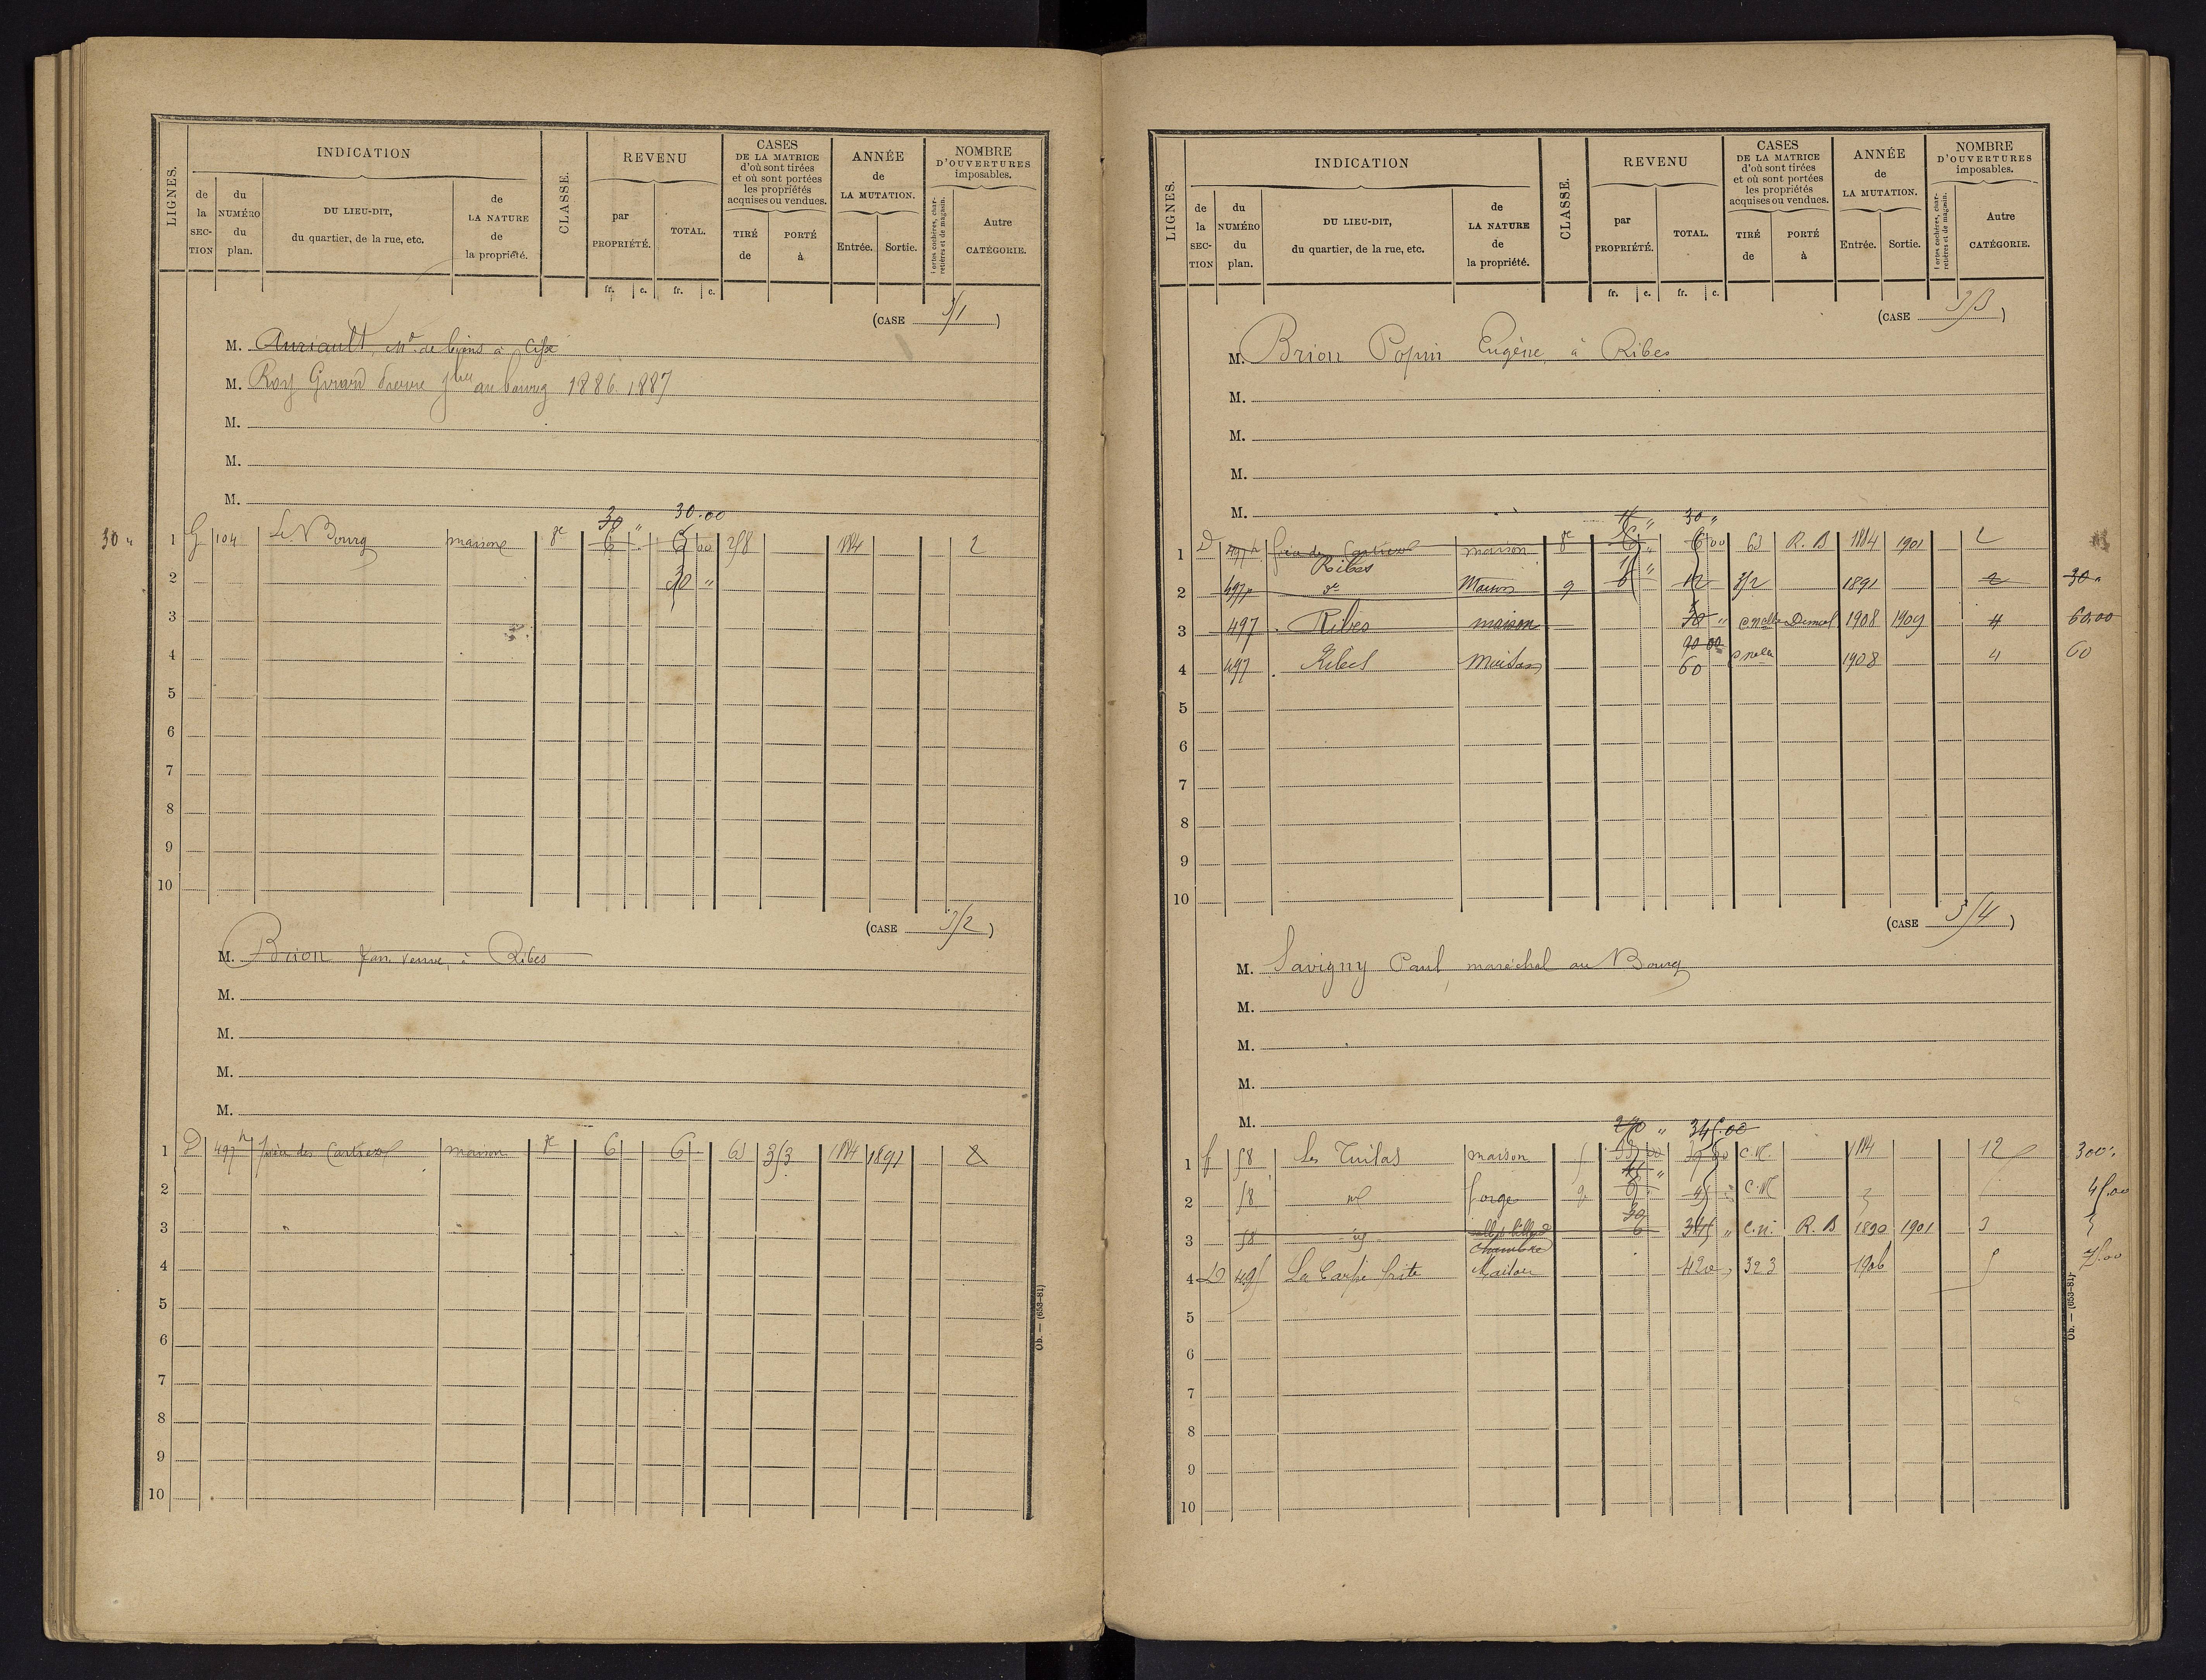 LIGNES.
INDICATION
de la SEC-TION
du NUMÉRO du plan.
DU LIEU-DIT, du quartier, de la rue, etc.
de LA NATURE de la propriété.
CLASSE.
REVENU
par PROPRIÉTÉ.
TOTAL.
fr. c. fr. c.
CASES DE LA MATRICE d'où sont tirées et où sont portées les propriétés acquises ou vendues.
TIRÉ de
PORTÉ à
ANNÉE de LA MUTATION.
Entrée. Sortie.
NOMBRE D'OUVERTURES imposables.
Portes cochères, charretières et de magasin.
Autre CATÉGORIE.
(CASE 351)
M. Auriault, Md de biens à Cissé
M. Roy Girard Pierre au bourg 1886.1887
M.
M.
M.
30 " 30.00
30 " 1 G 104 Le Bourg maison 8e 6 6 00 258 1884 2
2 30 "
3
4
5
6
7
8
9
10
(CASE 352)
M. Brion Jean Veuve, à Ribes
M.
M.
M.
M.
1 D 497 maison 8e 6 6 65 353 1884 1891 2
2
3
4
5
6
7
8
9
10
Ob. — (653-81)
LIGNES.
INDICATION
de la SEC-TION
du NUMÉRO du plan.
DU LIEU-DIT, du quartier, de la rue, etc.
de LA NATURE de la propriété.
CLASSE.
REVENU
par PROPRIÉTÉ.
TOTAL.
fr. c. fr. c.
CASES DE LA MATRICE d'où sont tirées et où sont portées les propriétés acquises ou vendues.
TIRÉ de
PORTÉ à
ANNÉE de LA MUTATION.
Entrée. Sortie.
NOMBRE D'OUVERTURES imposables.
Portes cochères, charretières et de magasin.
Autre CATÉGORIE.
(CASE 353)
M. Brion Popin Eugène, à Ribes
M.
M.
M.
M.
30 "
1 D 497 maison 8e 6 6 00 65 R. B 1884 1901 2
Ribes
2 497p do Maison 9 6 12 352 1891 2 30 "
3 497 Ribes maison 30 " Démol 1908 1909 4 60.00
90 00
4 497 Ribes Maison 60 1908 4 60
5
6
7
8
9
10
(CASE 354)
M. Savigny Paul, maréchal au Bourg
M.
M.
M.
M.
270 " 345.00
1 58 Les Tuilas maison 5 C.N. 1884 12 300
2 58 forge 9 C.N 45.00
30
3 58 chambre 6 345 " C.N. R. B 1890 1901 3
4 D 495 La Carpe frite Maison 420 323 1906 5 75.00
5
6
7
8
9
10
Ob. — (653-81)